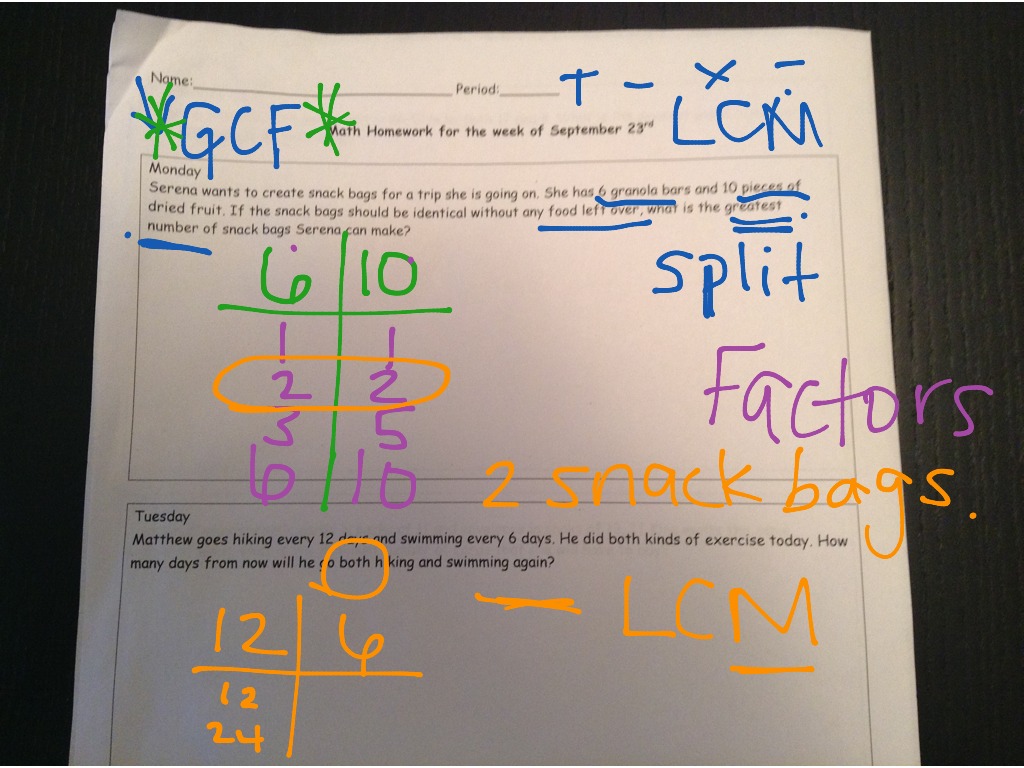 Name:____ Period:____
+ - × ÷
*GCF* LCM
Math Homework for the week of September 23rd
Monday
Serena wants to create snack bags for a trip she is going on. She has 6 granola bars and 10 pieces of
dried fruit. If the snack bags should be identical without any food left over, what is the greatest
number of snack bags Serena can make?
split
6 10
1 1
2 2
3 5
6 10
Factors
2 snack bags.
Tuesday
Matthew goes hiking every 12 days and swimming every 6 days. He did both kinds of exercise today. How
many days from now will he go both hiking and swimming again?
LCM
12 6
12
24